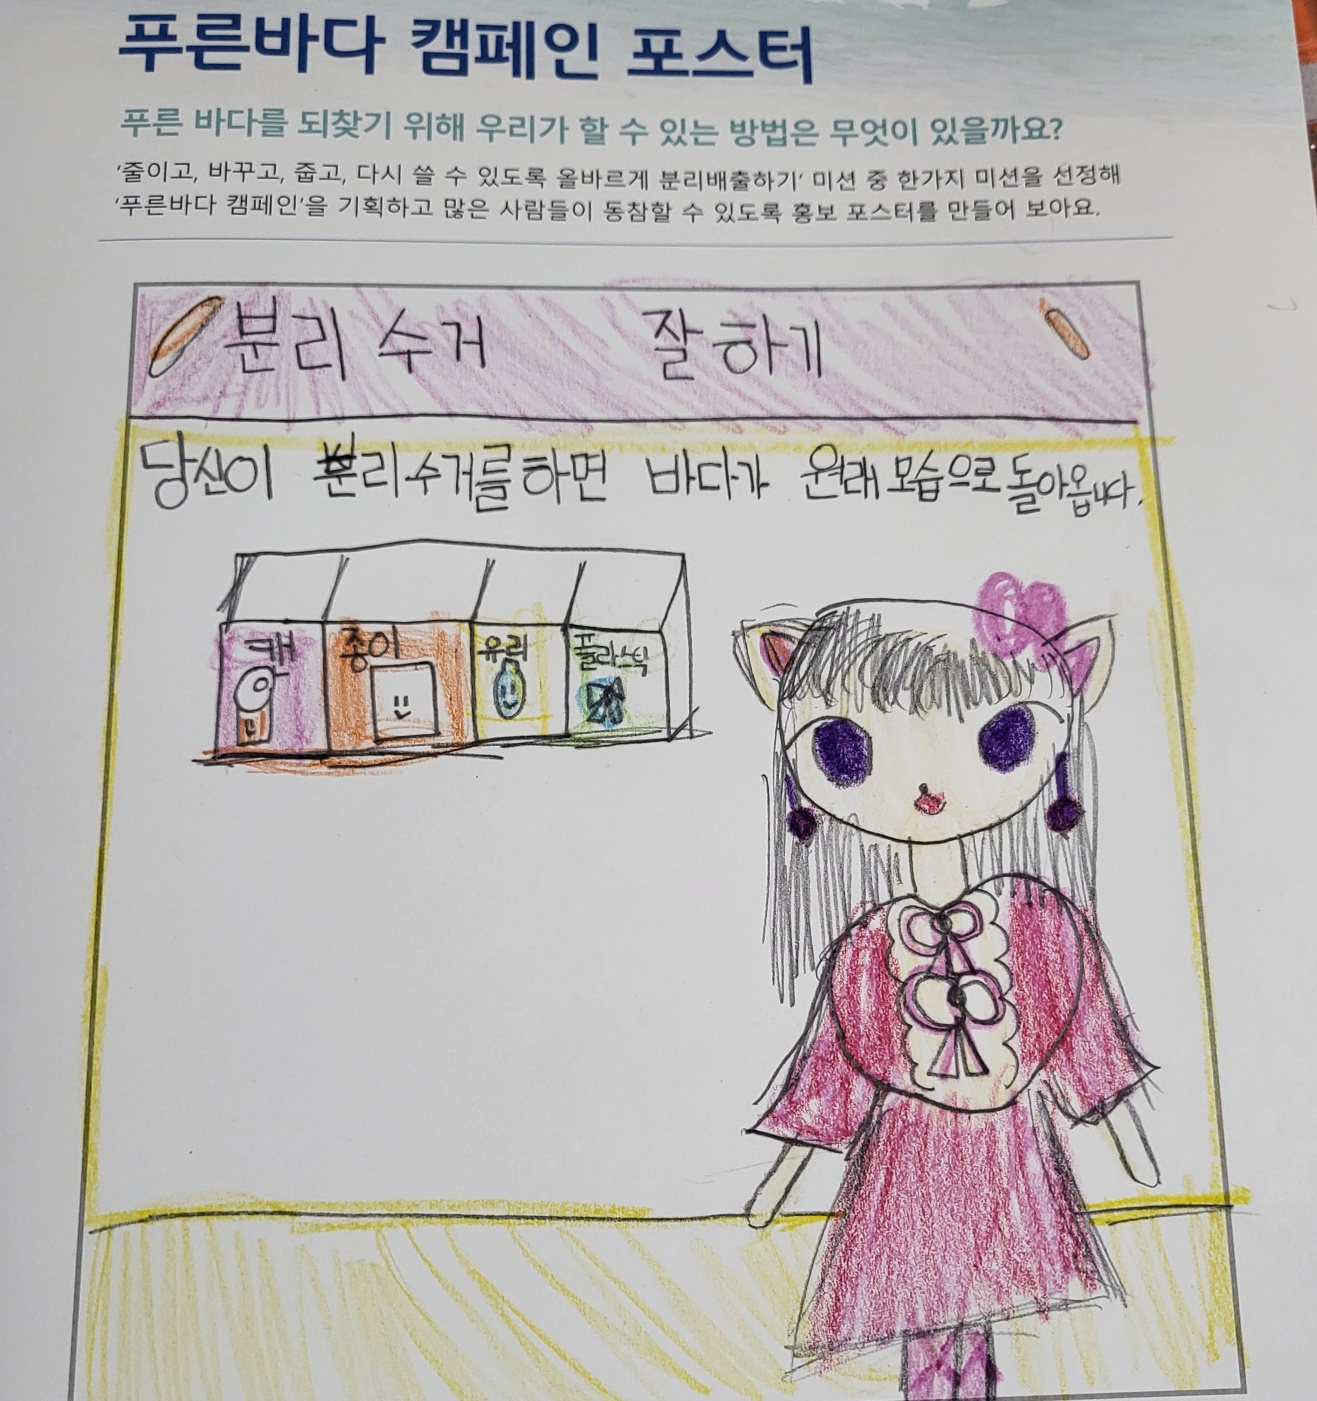 푸른바다 캠페인 포스터
푸른 바다를 되찾기 위해 우리가 할 수 있는 방법은 무엇이 있을까요?
'줄이고, 바꾸고, 줍고, 다시 쓸 수 있도록 올바르게 분리배출하기' 미션 중 한가지 미션을 선정해
'푸른바다 캠페인'을 기획하고 많은 사람들이 동참할 수 있도록 홍보 포스터를 만들어 보아요.
분리 수거 잘하기
당신이 분리수거를하면 바다가 원래모습으로돌아옵니다.
캔 종이 유리 플라스틱